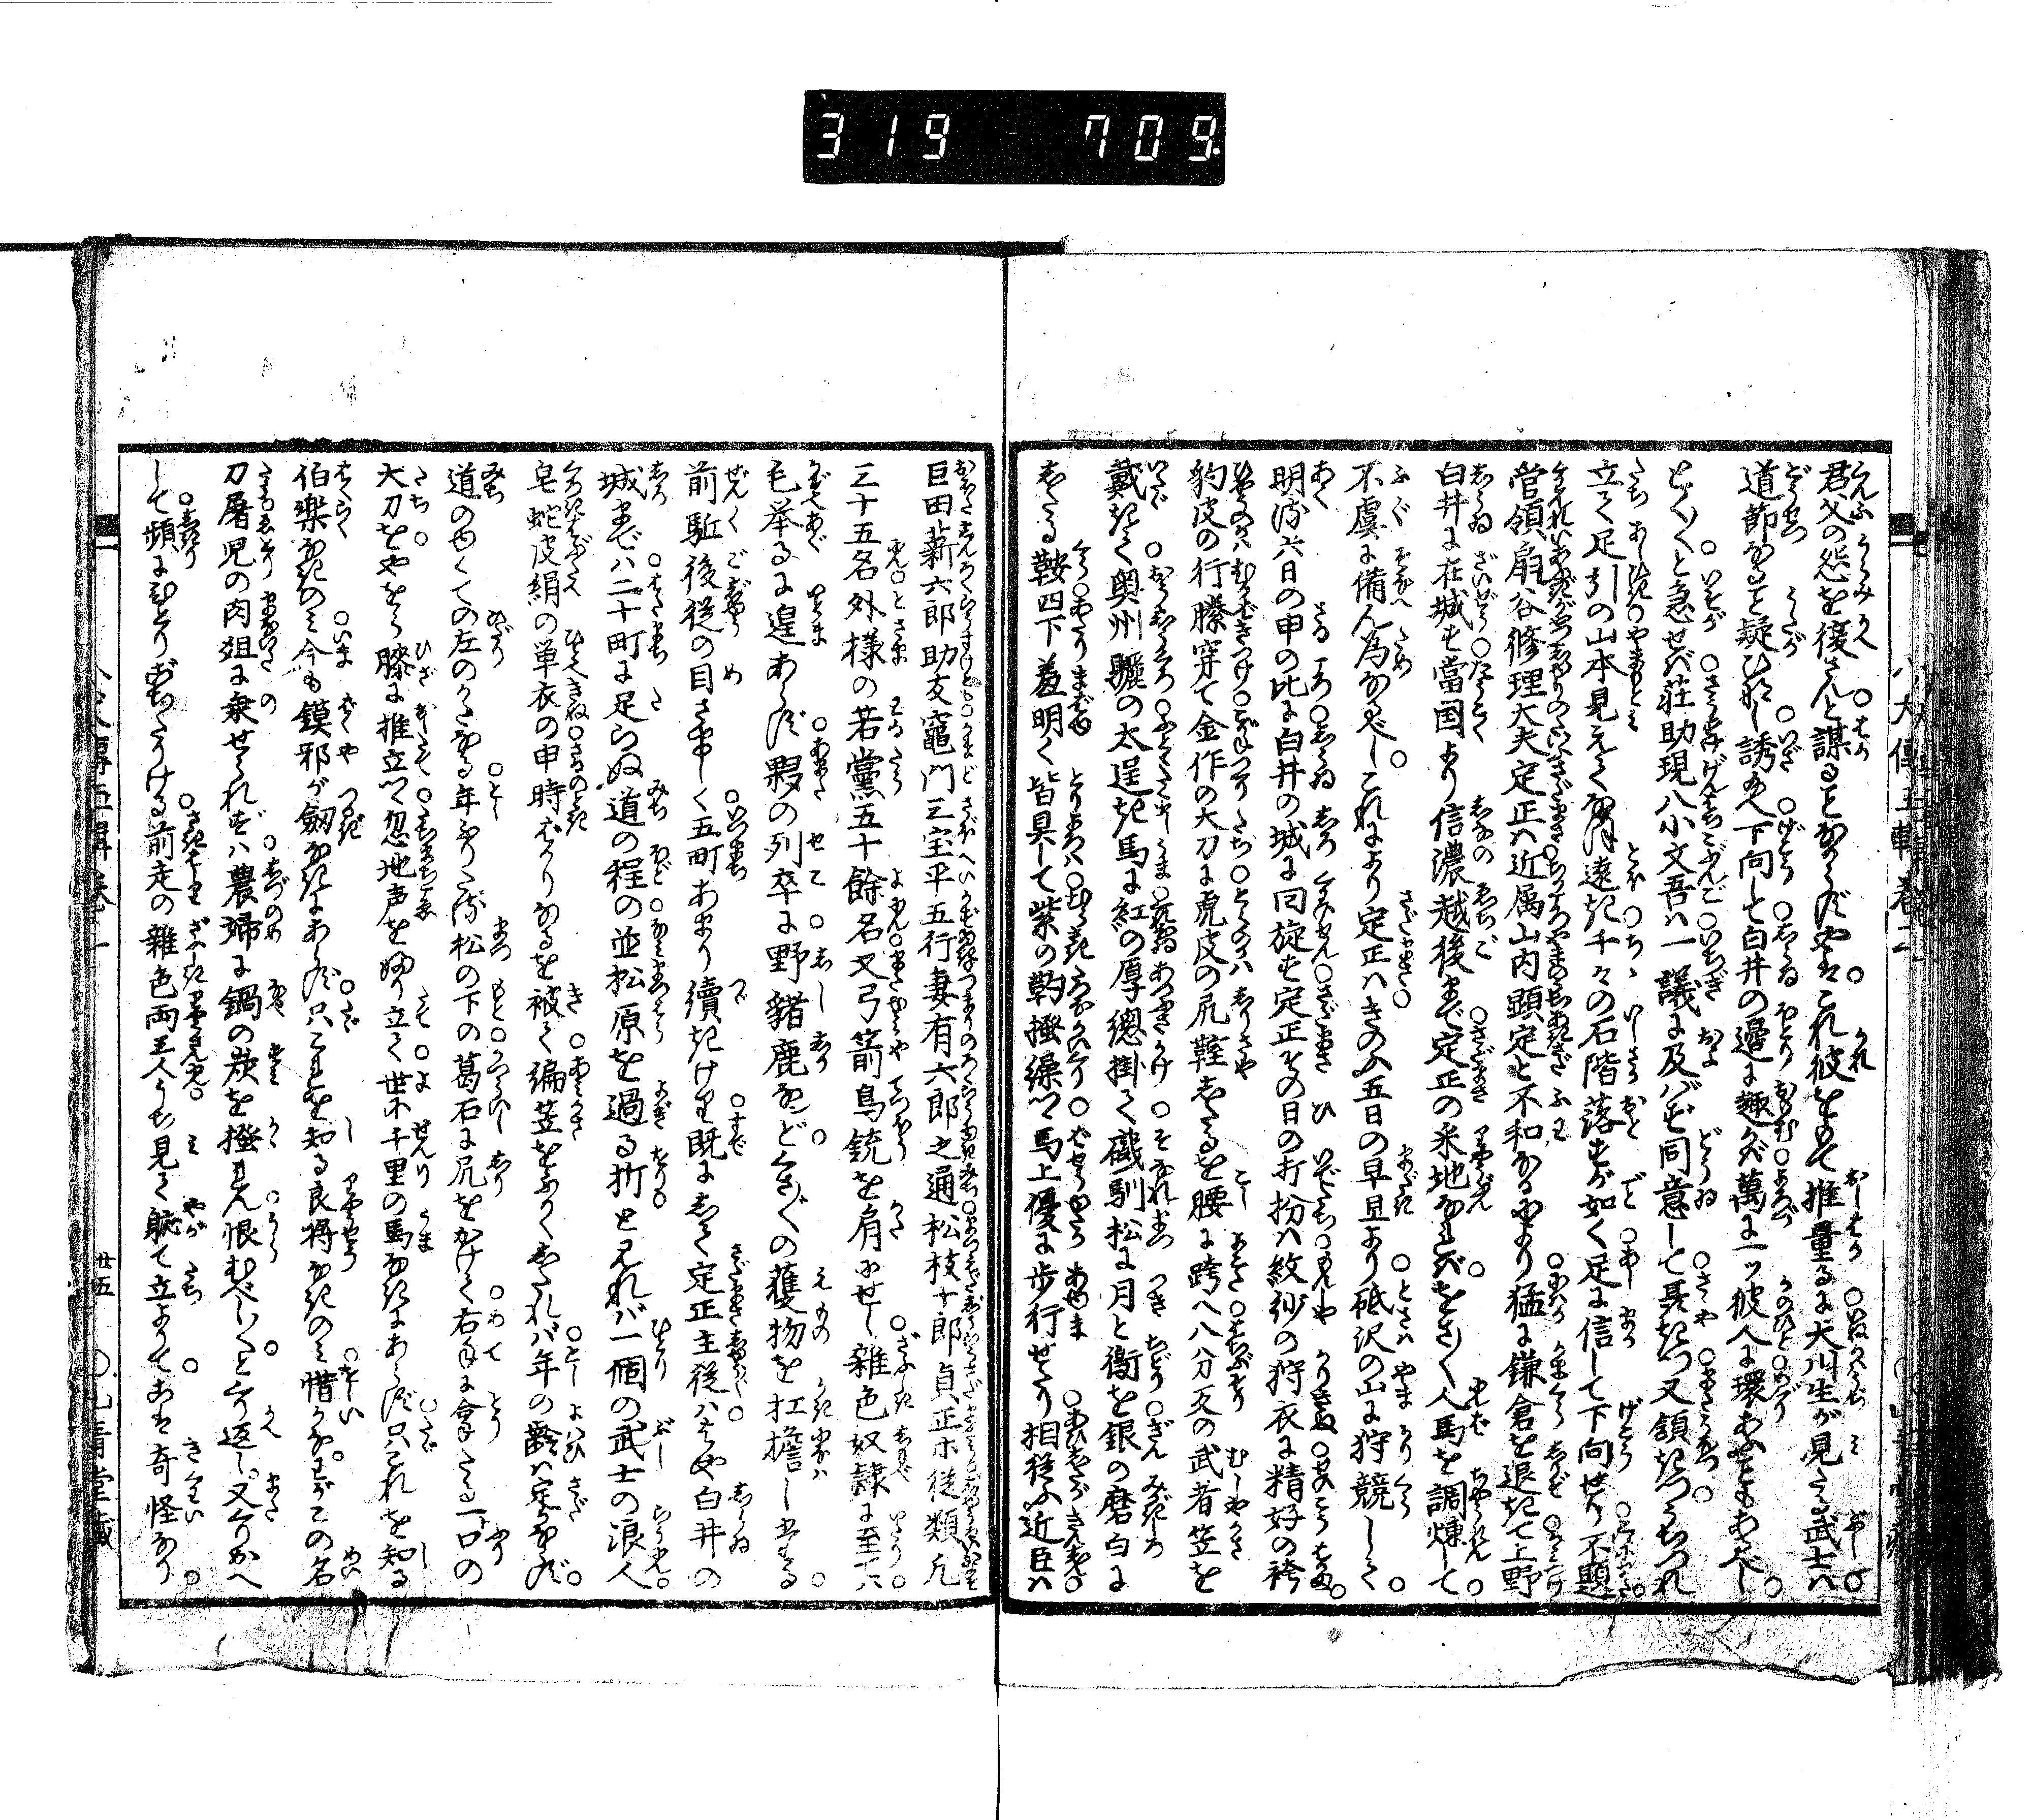 319 709
君父の怨を復さんと謀ることなからずやはこれ彼をもて推量るに犬川生が見たる武士は
道節なること疑ひなし誘給へ下向して白井の邊に趣かば萬に一ッ彼人に環あふこともあるべし
とく〳〵と急せば荘助現八小文吾は一議に及ばず同意して点きつ又領きつうちつれ
立て足引の山本見えてなほ遠き千々の石階落すが如く足に信して下向せり不題
管領扇谷修理大夫定正は近属山内顕定と不和なるにより猛に鎌倉を退きて上野
白井に在城す當国より信濃越後まで定正の釆地なればをさ〳〵人馬を調煉して
不虞に備ん為なるべしこれにより定正はきのふ五日の早旦より砥沢の山に狩競して
明る六日の申の比に白井の城に回旋す定正その日の打扮は紋紗の狩衣に精好の袴
豹皮の行縢穿て金作の大刀に虎皮の尻鞘したるを腰に跨へ八分反の武者笠を
戴きて奥州驪の太逞き馬に紅の厚總掛て磯馴松に月と衡を銀の磨白に
したる鞍四下羞明く皆具して紫の靮掻繰つ馬上優に歩行せたり相從ふ近臣は
巨田薪六郎助友竈門三宝平五行妻有六郎之通松枝十郎貞正ホ従類凡
三十五名外様の若黨五十餘名又弓箭鳥銃を肩にせし雑色奴隷に至ては
毛挙るに遑あらず夥の列卒に野豬鹿なンどくさ〴〵の獲物を扛擔しもある
前駈後従の目さましく五町あまり續きけり既にして定正主従ははや白井の
城までは二十町に足らぬ道の程の並松原を過る折と見れば一個の武士の浪人
皂蛇皮絹の単衣の申時ばかりなるを被て編笠をふかくしたれば年の齢は定かならず
道のゆくての左のかたなる年ふりたる松の下の葛石に尻をかけて右手に拿たる一口の
大刀をやをら膝に推立つ忽地声をふり立て世に千里の馬なきにあらず只これを知る
伯樂なきのみ今も鏌邪が劔なきにあらず只これを知る良将なきのみ惜かなわがこの名
刀屠児の肉俎に乗せられずは農婦に鍋の炭を掻れん恨むべし〳〵とくり返し又くりかへ
して頻にひとりごちたりける前走の雑色両三人うち見て軈て立よりてあな奇怪なり
八犬傳五輯卷二
廿五